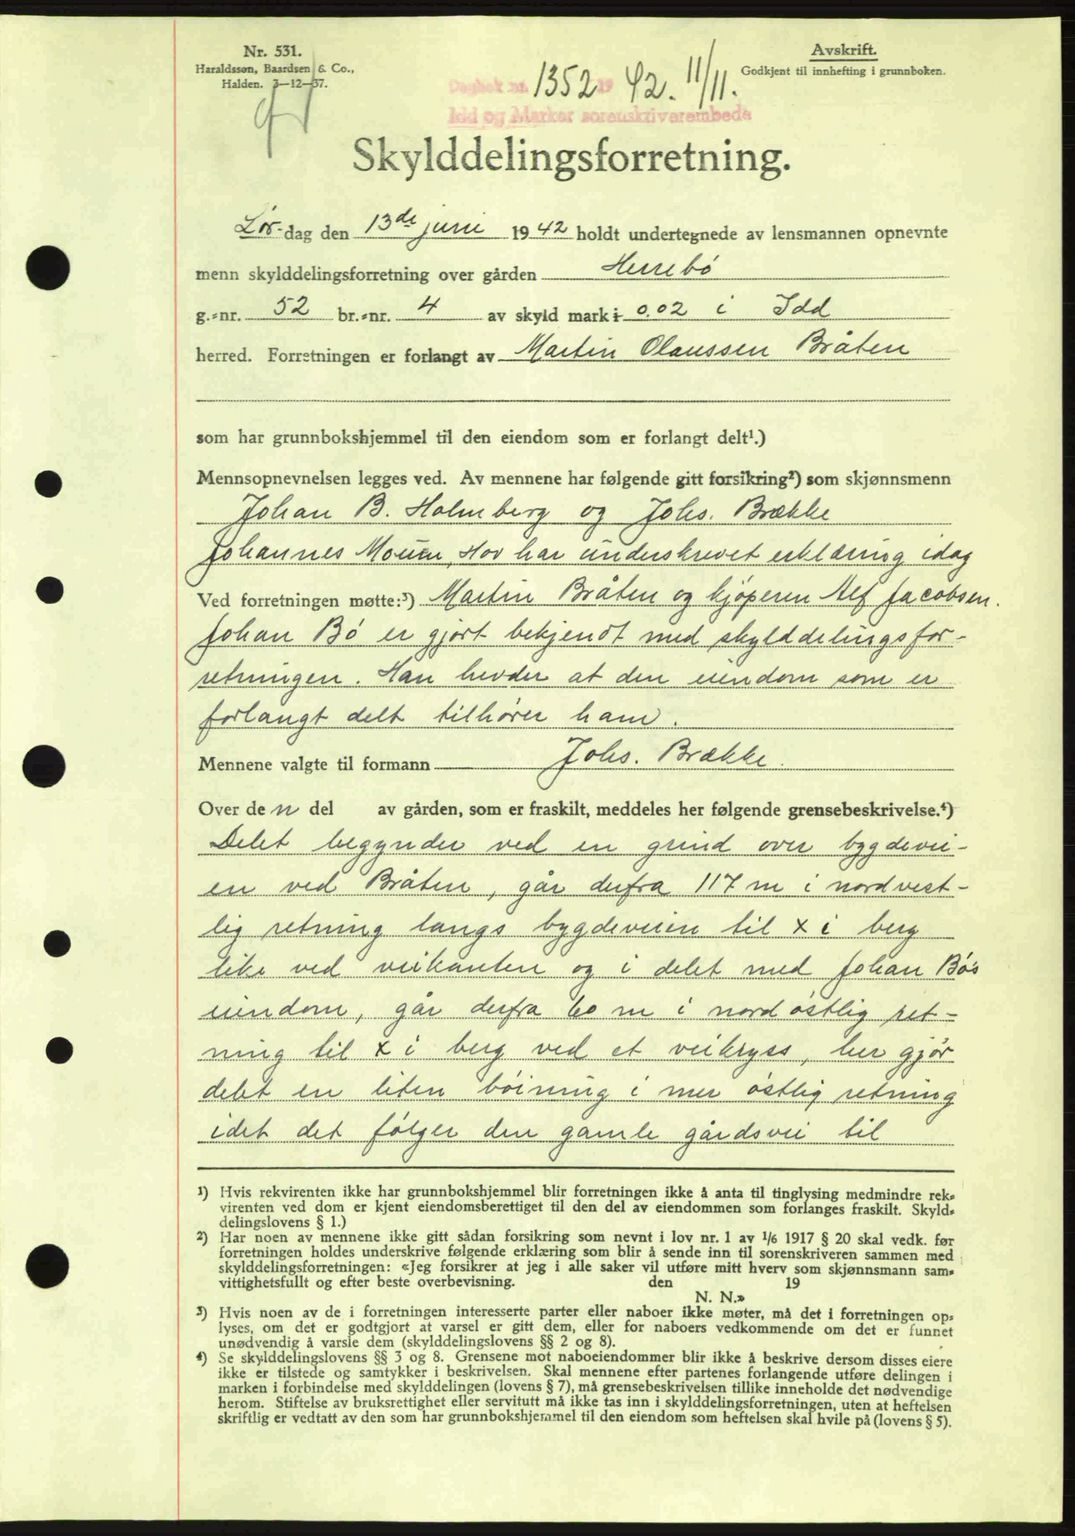 Nr. 531.
Haraldssøn, Baardsen & Co.,
Halden. 3—12—37.
Avskrift.
Godkjent til innhefting i grunnboken.
Dagbok nr. 1352 19 42. 11/11.
Idd og Marker sorenskriverembede
Skylddelingsforretning.
Lør-dag den 13de juni 1942 holdt undertegnede av lensmannen opnevnte
menn skylddelingsforretning over gården Herrebø
g.=nr. 52 br.=nr. 4 av skyld mark 0.02 i Idd
herred. Forretningen er forlangt av Martin Olaussen Bråten
som har grunnbokshjemmel til den eiendom som er forlangt delt¹.)
Mennsopnevnelsen legges ved. Av mennene har følgende gitt forsikring²) som skjønnsmenn
Johan B. Holmberg og Johs. Brække
Johannes Mouen, Hov har underskrevet erklæring idag
Ved forretningen møtte:³) Martin Bråten og kjøperen Alf Jacobsen.
Johan Bø er gjort bekjendt med skylddelingsfor-
retningen. Han hevder at den eiendom som er
forlangt delt tilhører ham.
Mennene valgte til formann Johs. Brække.
Over den del av gården, som er fraskilt, meddeles her følgende grensebeskrivelse.⁴)
Delet begynder ved en grind over bygdevei-
en ved Bråten, går derfra 117 m i nordvest-
lig retning langs bygdeveien til x i berg
like ved veikanten og i delet med Johan Bø's
eiendom, går derfra 60 m i nordøstlig ret-
ning til x i berg ved et veikryss, her gjør
delet en liten bøining i mer østlig retning
idet det følger den gamle gårdsvei til
¹) Hvis rekvirenten ikke har grunnbokshjemmel blir forretningen ikke å anta til tinglysing medmindre rek=
virenten ved dom er kjent eiendomsberettiget til den del av eiendommen som forlanges fraskilt. Skyld=
delingslovens § 1.)
²) Har noen av mennene ikke gitt sådan forsikring som nevnt i lov nr. 1 av 1/6 1917 § 20 skal vedk. før
forretningen holdes underskrive følgende erklæring som blir å sende inn til sorenskriveren sammen med
skylddelingsforretningen: «Jeg forsikrer at jeg i alle saker vil utføre mitt hverv som skjønnsmann sam=
vittighetsfullt og efter beste overbevisning. den 19
N. N.»
³) Hvis noen av de i forretningen interesserte parter eller naboer ikke møter, må det i forretningen op=
lyses, om det er godtgjort at varsel er gitt dem, eller for naboers vedkommende om det er funnet
unødvendig å varsle dem (skylddelingslovens §§ 2 og 8).
⁴) Se skylddelingslovens §§ 3 og 8. Grensene mot naboeiendommer blir ikke å beskrive dersom disses eiere
ikke er tilstede og samtykker i beskrivelsen. Skal mennene efter partenes forlangende utføre delingen i
marken i forbindelse med skylddelingen (lovens § 7), må grensebeskrivelsen tillike inneholde det nødvendige
herom. Stiftelse av bruksrettighet eller servitutt må ikke tas inn i skylddelingsforretningen, uten at heftelsen
skriftlig er vedtatt av den som har grunnbokshjemmel til den eiendom som heftelsen skal hvile på (lovens § 5).